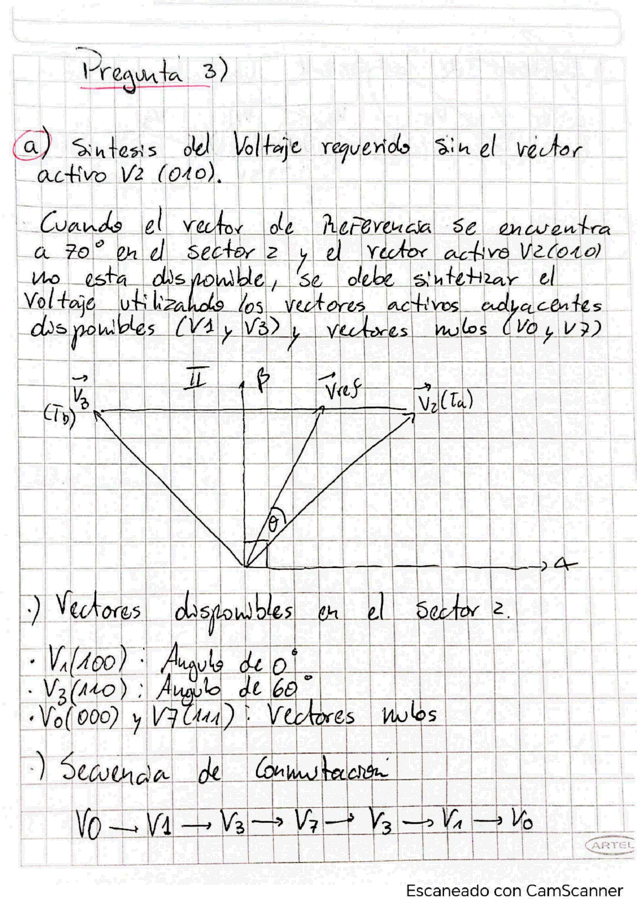 Pregunta 3)
a) Sintesis del Voltaje requerido sin el véctor
activo V2 (010).
Cuando el vector de Referencia se encuentra
a 70° en el sector 2 y el vector activo V2(010)
no esta disponible, se debe sintetizar el
Voltaje utilizando los vectores activos adyacentes
disponibles (V1 y V3) y vectores nulos (V0 y V7)
V3 II β Vref
(Tb) V2(Ta)
θ
α
·) Vectores disponibles en el sector 2.
· V1(100) : Angulo de 0°
· V3(110) : Angulo de 60°
· V0(000) y V7(111) : Vectores nulos
·) Secuencia de Conmutación
V0 → V1 → V3 → V7 → V3 → V1 → V0
ARTEL
Escaneado con CamScanner